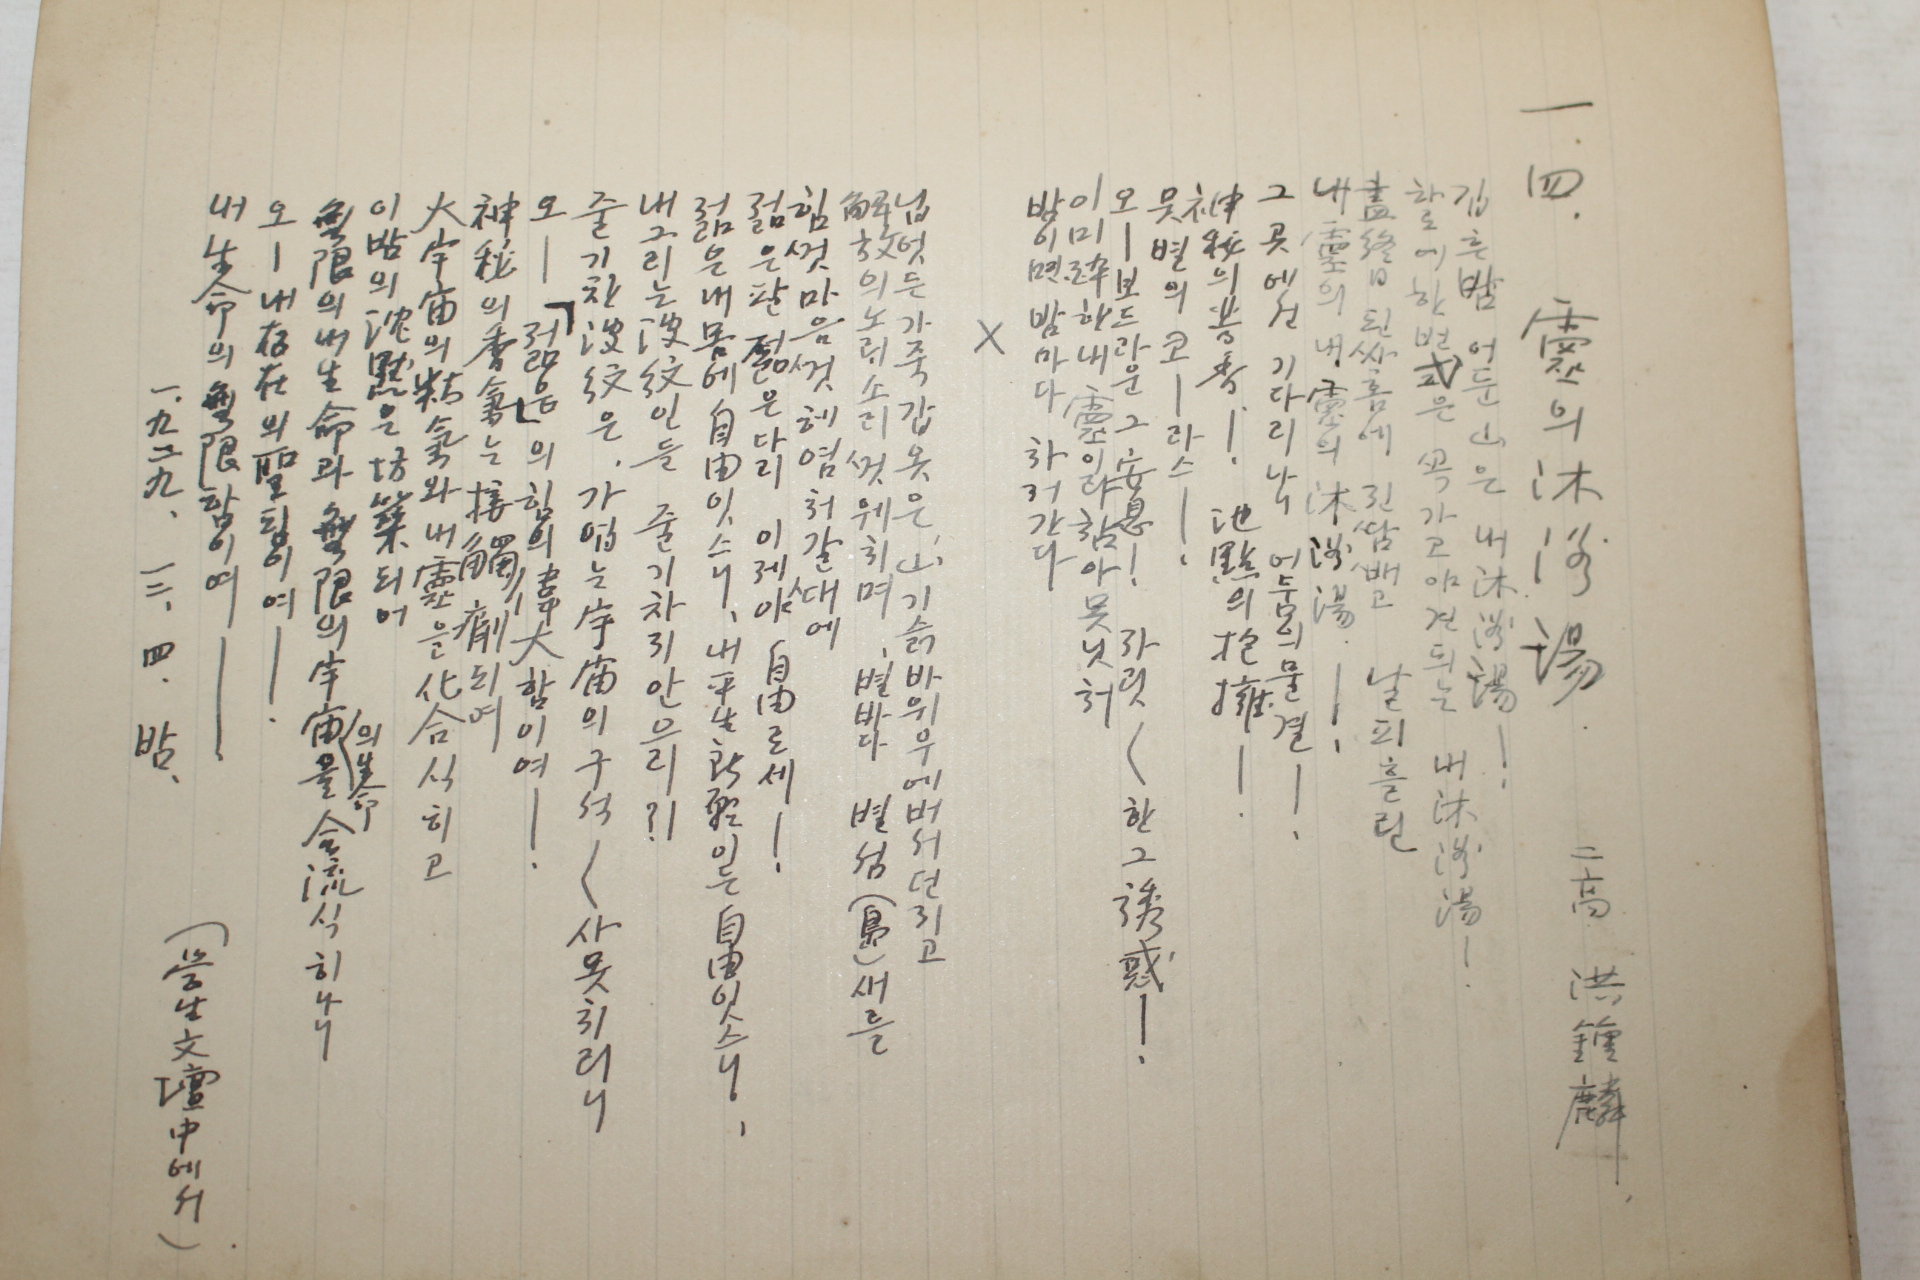 一. 四. 靈의 沐浴場. 二高 洪鍾麟.
깁흔밤 어둔山은 내 沐浴湯!
하로에 한번式은 꼭 가고야 견듸는 내 沐浴湯!
盡終日 된싸홈에 진땀 배고 날피 흘린
내 靈의 내 靈의 沐浴湯.!
그곳에선 기다리나 어둠의 물결!.
神秘의 芳香! 地點의 抱擁!.
뭇별의 코ー라스!.
오ー보드라운 그 安息! 자릿〱한 그 誘惑!.
이미 醉한 내 靈이라 참아 못닛저
밤이면 밤마다 차저간다
×
넙덧든 가죽갑옷은 山기슭 바위우에 버서던지고
解放의 노래 소리껏 웨치며, 별바다 별섬(島)새를
힘껏 마음껏 헤염처갈때에
젊은팔 젊은다리 이제야 自由로세!.
젊은 내몸에 自由잇스니, 내 平生 하염인들 自由잇스니,
내 그리는 波紋인들 줄기차지 안으리?!
줄기찬 波紋은, 가업는 宇宙의 구석〱 사못치리니
오ー「젊음」의 힘의 偉大함이여!.
神秘의 香氣는 接觸劑되여
大宇宙의 精氣와 내 靈을 化合식히고
이밤의 沈默은 坩堝되어
無限의 내 生命과 無限의 宇宙의 生命을 合流식히나니
오ー내 存在의 聖됨이여!.
내 生命의 無限함이여ー!
一.九二九、一三.四.밤.
(學生文壇中에서).